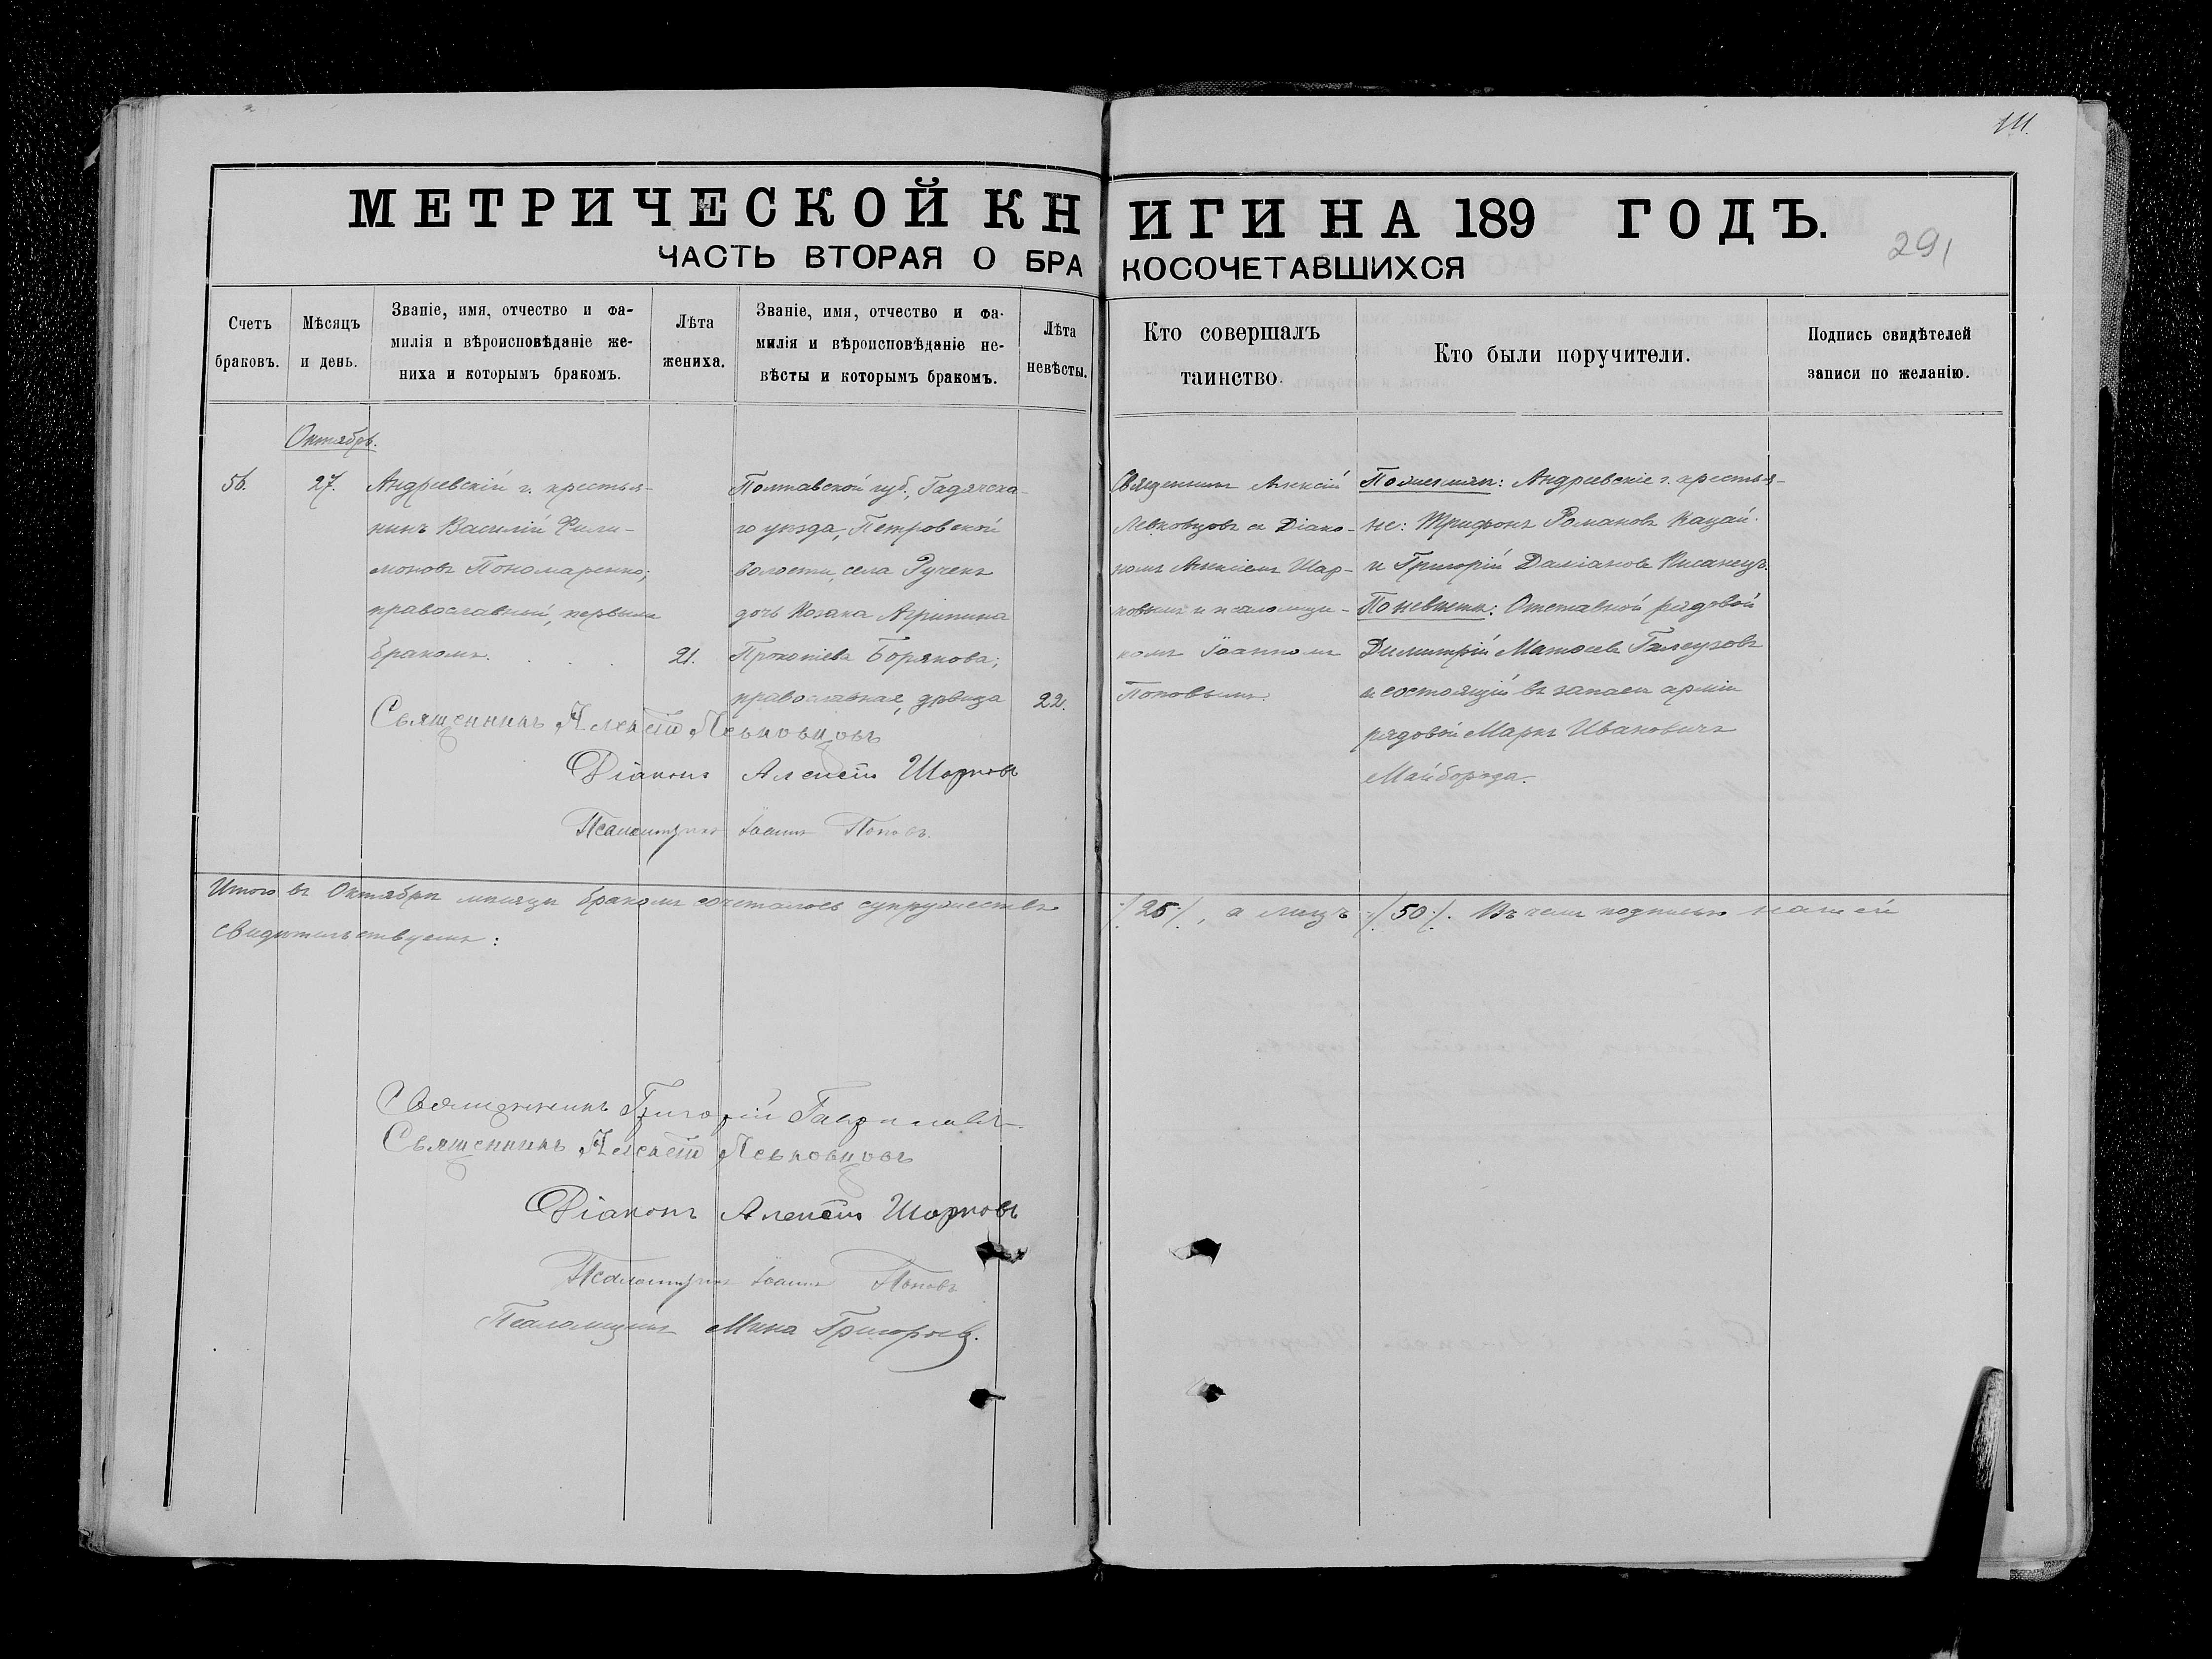 111.
МЕТРИЧЕСКОЙ КНИГИ НА 189 ГОДЪ.
291
ЧАСТЬ ВТОРАЯ О БРАКОСОЧЕТАВШИХСЯ
Счетъ браковъ.
Мѣсяцъ и день.
Званіе, имя, отчество и фа-
милія и вѣроисповѣданіе же-
ниха и которымъ бракомъ.
Лѣта жениха.
Званіе, имя, отчество и фа-
милія и вѣроисповѣданіе не-
вѣсты и которымъ бракомъ.
Лѣта невѣсты.
Кто совершалъ
таинство.
Кто были поручители.
Подпись свидѣтелей
записи по желанію.
Октябрь.
56.
27.
Андреевскій г. крестья-
нинъ Василій Фили-
моновъ Пономаренко;
православный, первымъ
бракомъ. . . .
21.
Полтавской губ., Гадячска-
го уѣзда, Петровской
волости, села Ручекъ
дочь Козака Агрипина
Прокопіева Борякова;
православная, дѣвица
22.
Священникъ Алексій
Левковцовъ съ Діако-
номъ Алексіемъ Шар-
ковымъ и псаломщи-
комъ Іоанномъ
Поповымъ.
По женихѣ: Андреевскіе г. крестья-
не: Трифонъ Романовъ Кацай
и Григорій Даміановъ Кисанецъ.
По невѣстѣ: Отставной рядовой
Димитрій Матѳеевъ Галецковъ
и состоящій въ запасѣ арміи
рядовой Маркъ Ивановичъ
Майборода.
Священникъ Алексій Левковцовъ
Діаконъ Алексій Шарковъ
Псаломщикъ Іоаннъ Поповъ.
Итого въ Октябрѣ мѣсяцѣ бракомъ сочеталось супружествъ :/25/:, а лицъ :/50/:. Въ чемъ подписью нашей
свидѣтельствуемъ:
Священникъ Григорій Гавриловъ
Священникъ Алексій Левковцовъ
Діаконъ Алексій Шарковъ
Псаломщикъ Іоаннъ Поповъ
Псаломщикъ Мина Григорьев.